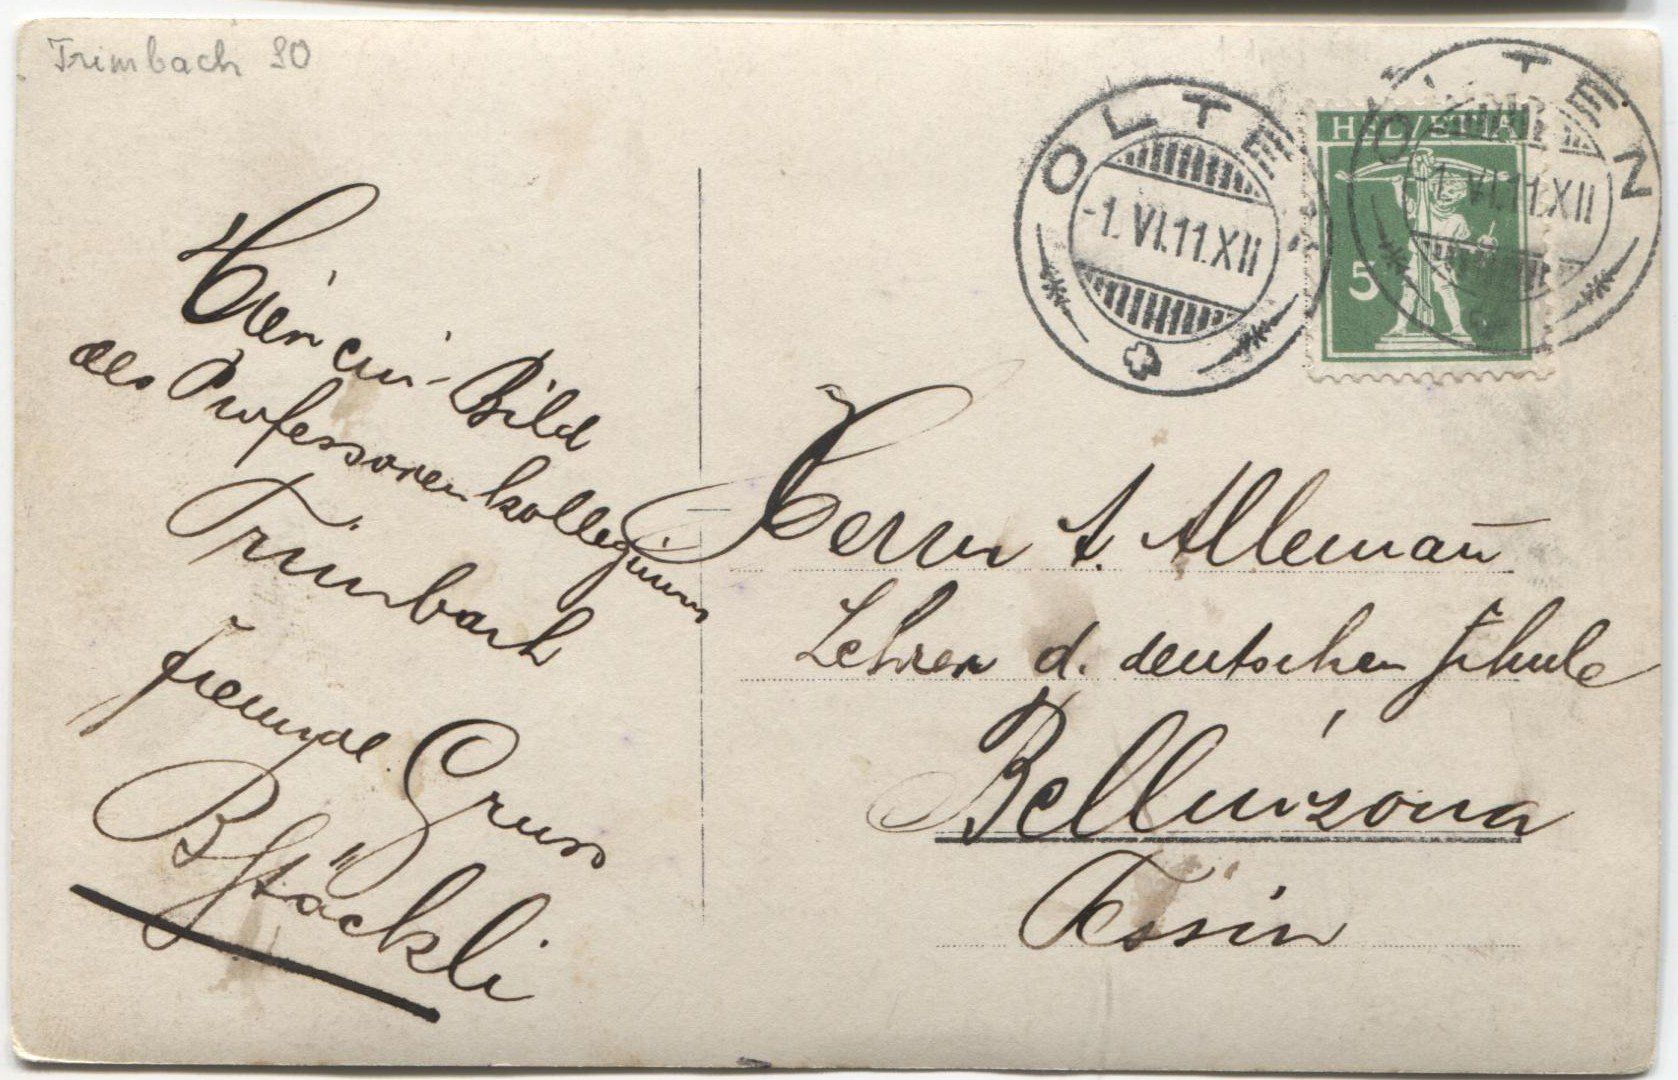 Trimbach SO
OLTEN
-1.VI.11.XII
HELVETIA
5
OLTEN
-1.VI.11.XII
Hier ein Bild
des Professorenkollegiums
Trimbach
Gruss
B Stöckli
Herrn A. Allemañ
Lehrer d. deutschen Schule
Bellinzona
Tessin